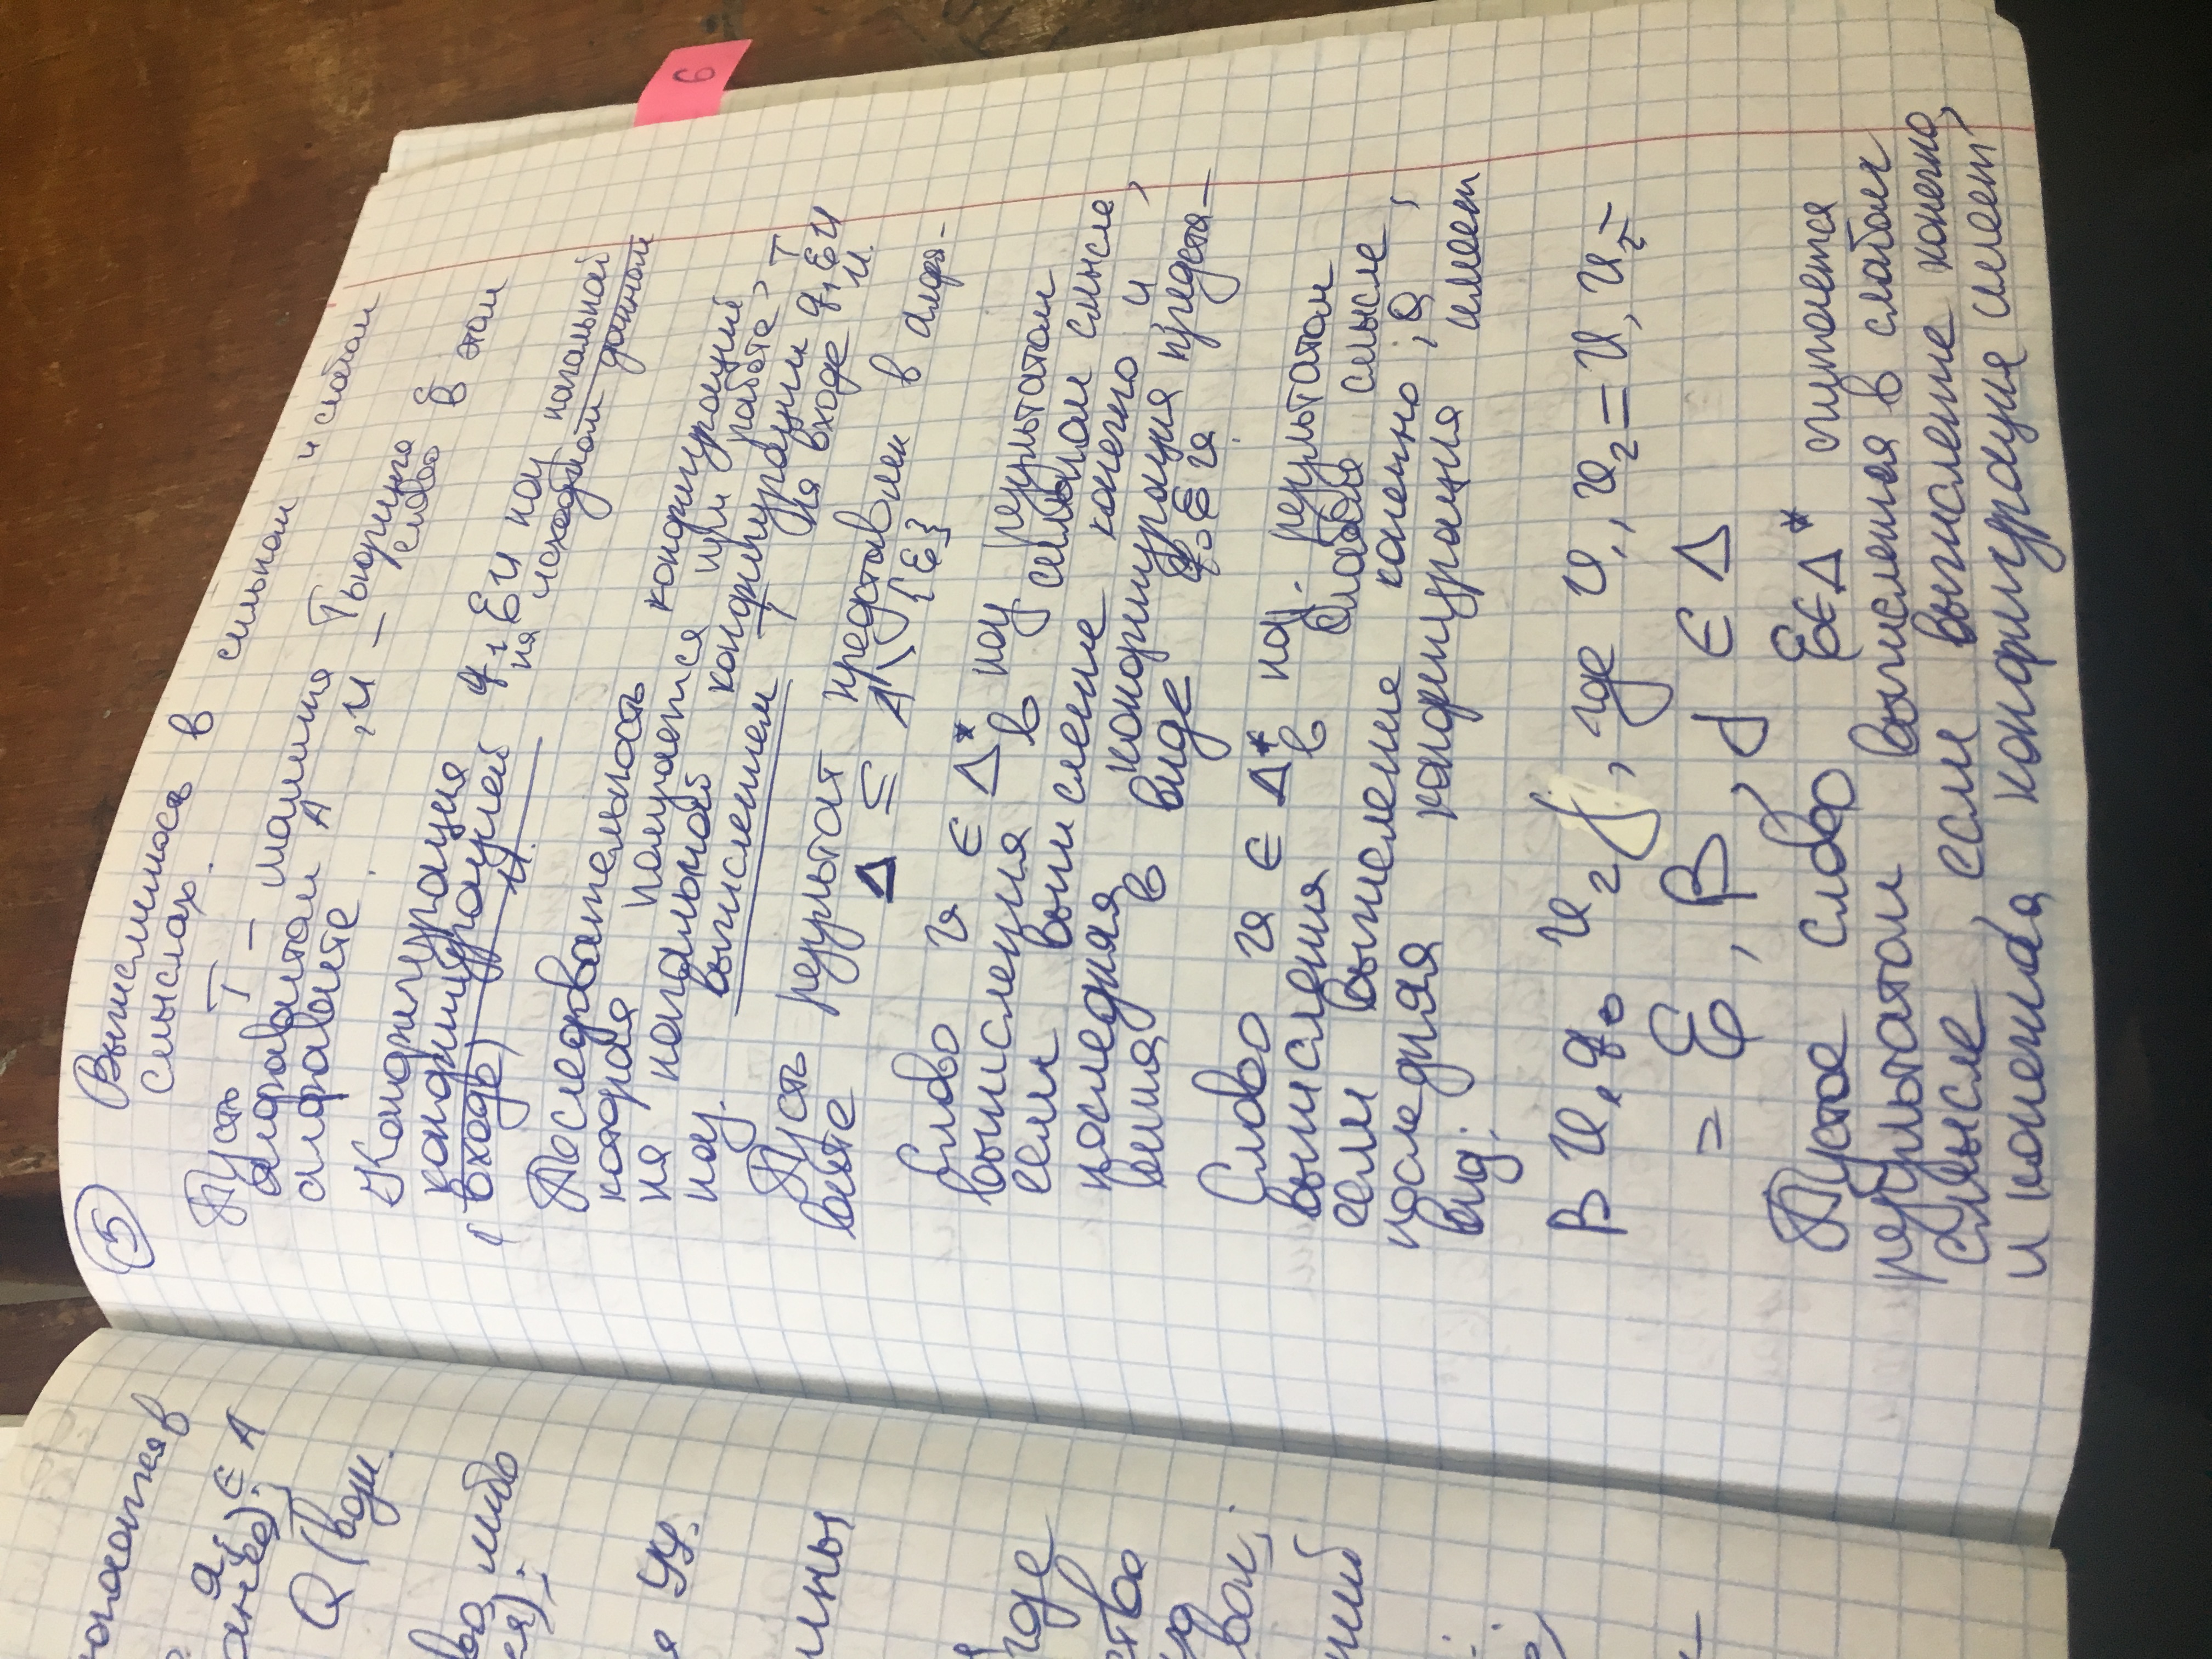 ᴎᴀ
а₁ ∈ А
Q (
либо
УУ.
где
⑤ Вычислимость в сильном и слабом
смыслах.
Пусть T – машина Тьюринга с
алфавитом A, u – слово в этом
алфавите.
Конфигурация q₁ℰu наз начальной
конфигурацией на исходном данном
(входе) u.
Последовательность конфигураций,
которая получается при работе T
на начальной конфигурации q₁ℰu
наз. вычислением T на входе u.
Пусть результат представлен в алфа-
вите Δ ⊆ A \ {ℰ}
Слово v ∈ Δ* наз результатом
вычисления в сильном смысле,
если вычисление конечно и
последняя конфигурация предста-
вима в виде q₀ℰv.
Слово v ∈ Δ* наз. результатом
вычисления в слабом смысле,
если вычисление конечно, а
последняя конфигурация имеет
вид:
β v₁ q₀ v₂ γ, где v₁, v₂ = v, v₂ =
= ℰ, β, γ ∈ Δ
Пустое слово ℰ ∈ Δ* считается
результатом вычисления в слабом
смысле, если вычисление конечно,
и конечная конфигурация имеет
6